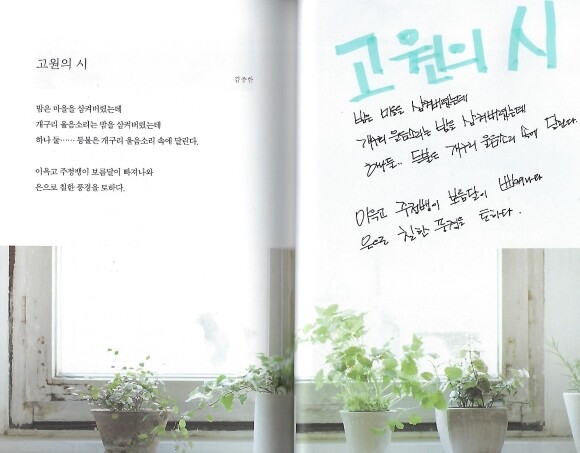 고원의 시
김종한
밤은 마을을 삼켜버렸는데
개구리 울음소리는 밤을 삼켜버렸는데
하나 둘…… 등불은 개구리 울음소리 속에 달린다.
이윽고 주정뱅이 보름달이 빠져나와
은으로 칠한 풍경을 토하다.
고원의 시
밤은 마을을 삼켜버렸는데
개구리 울음소리는 밤을 삼켜버렸는데
하나 둘.. 등불은 개구리 울음소리 속에 달린다.
이윽고 주정뱅이 보름달이 빠져나와
은으로 칠한 풍경을 토하다.